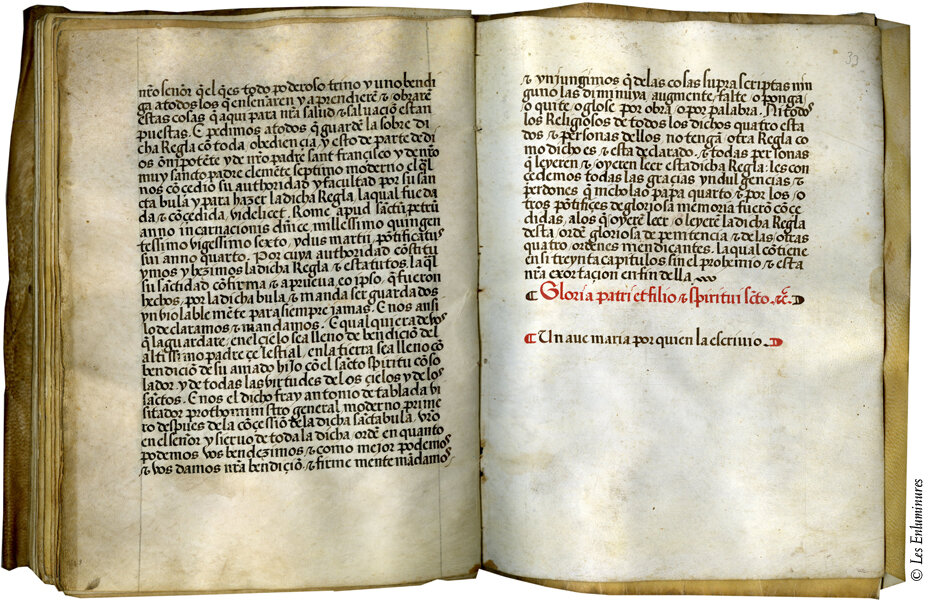 nr̄o señor q̄ el q̄ es todo poderoso trino y uno bendi
ga a todos los q̄ enseñaren y aprendierē ⁊ obrarē
estas cosas q̄ aqui para nr̄a salud ⁊ saluaciō estan
puestas. E pedimos a todos q̄ guardē la sobre di
cha Regla cō toda obediencia y esto de parte de di
os ōnipotēte y de nr̄o padre sant francisco y de nr̄o
muy sancto padre clemēte septimo moderno el q̄l
nos cōcedio su authoridad y facultad por su san
cta bula y para hazer la dicha Regla, la qual fue da
da ⁊ cōcedida, videlicet. Rome apud sanctū petrū
anno incarnacionis dn̄ice millessimo quingen
tessimo vigessimo sexto, ydus martii, pōtificatus
sui anno quarto. Por cuya authoridad cōstitu
ymos y hezimos la dicha Regla ⁊ estatutos, la q̄l
su sāctidad cōfirma ⁊ aprueua, eo ipso, q̄ fueron
hechos, por la dicha bula ⁊ manda ser guardados
ynviolable mēte para siempre jamas. E nos ansi
lo declaramos ⁊ mandamos. E qual quiera de vos
q̄ la guardare, en el cielo sea lleno de bendiciō del
altissimo padre çelestial, en la tierra sea lleno cō
bendiciō de su amado hijo cō el sācto spiritu cōso
lador. y de todas las virtudes de los çielos y de los
sāctos. E nos el dicho fray antonio de tablada vi
sitador prothoministro general, moderno prime
ro despues de la cōcessiō de la dicha sācta bula, vr̄o
en el señor y sieruo de toda la dicha ordē en quanto
podemos vos bendezimos ⁊ como mejor podemos
⁊ vos damos nr̄a bendiciō. ⁊ firme mente mādamos
33
⁊ ynjungimos q̄ de las cosas supra scriptas nin
guno las diminuya, augmente, falte, o ponga
o quite, o glose por obra o por palabra. Ni todos
los Religiosos de todos los dichos quatro esta
dos ⁊ personas dellos no tengā otra Regla co
mo dicho es ⁊ esta declarado. ⁊ todas personas
q̄ leyeren ⁊ oyeren leer esta dicha Regla: les con
cedemos todas las gracias yndulgencias ⁊
perdones q̄ nicholao papa quarto ⁊ por los o
tros pōtifices de gloriosa memoria fuerō cōce
didas, a los q̄ oyerē leer o leyerē la dicha Regla
desta ordē gloriosa de penitencia ⁊ de las otras
quatro ordenes mendicantes. La qual cōtiene
en si treynta capitulos sin el prohemio ⁊ esta
nr̄a exortaçion en fin della
Gloria patri et filio ⁊ spiritui scto. ⁊c̄.
Un aue maria por quien la escriuio.
© Les Enluminures